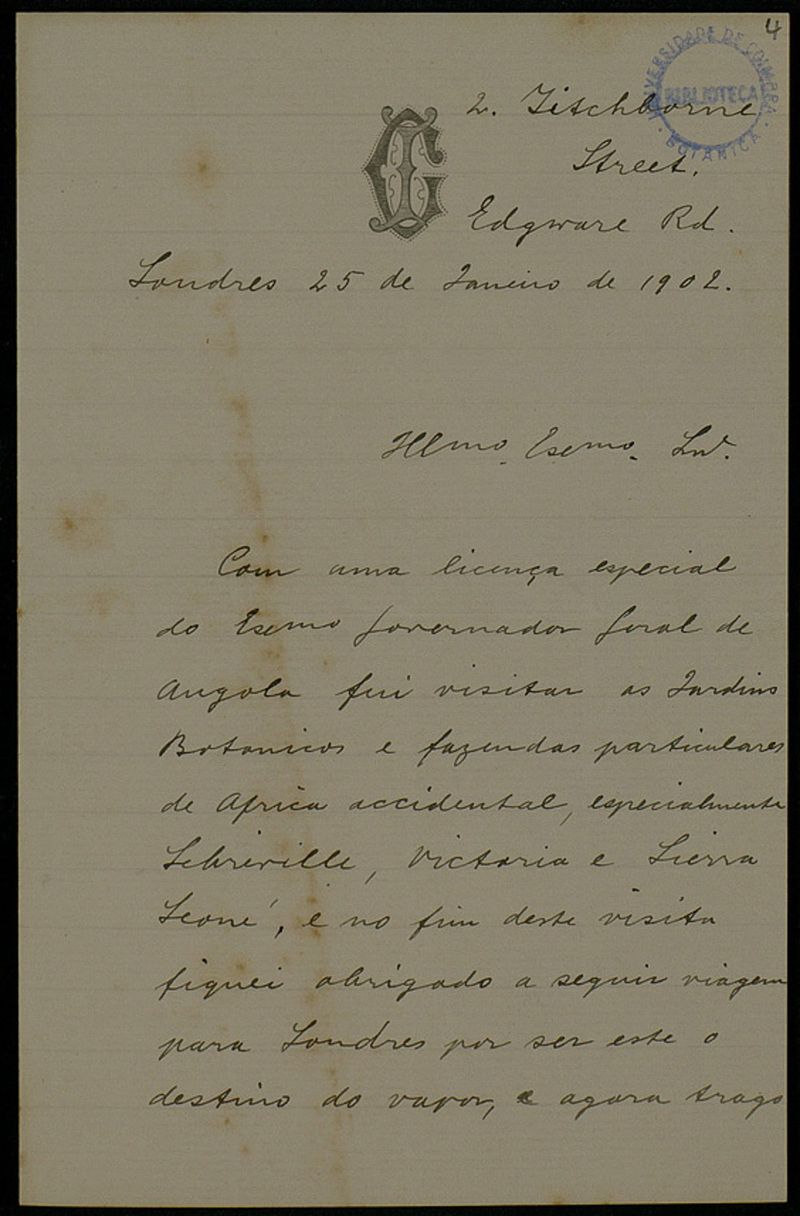 4
UNIVERSIDADE DE COIMBRA
BIBLIOTECA
BOTANICA
2. Titchborne
Street.
Edgware Rd.
Londres 25 de Janeiro de 1902.
Illmo. Exemo. Snr.
Com uma licença especial
do Exemo Governador Geral de
Angola fui visitar os Jardins
Botanicos e fazendas particulares
de Africa occidental, especialmente
Libreville, Victoria e Sierra
Leone, e no fim deste visita
fiquei obrigado a seguir viagem
para Londres por ser este o
destino do vapor, e agora trago